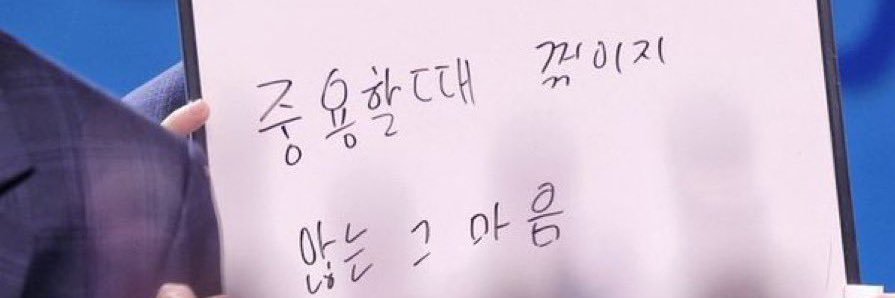 중용할때 꺾이지
않는 그 마음